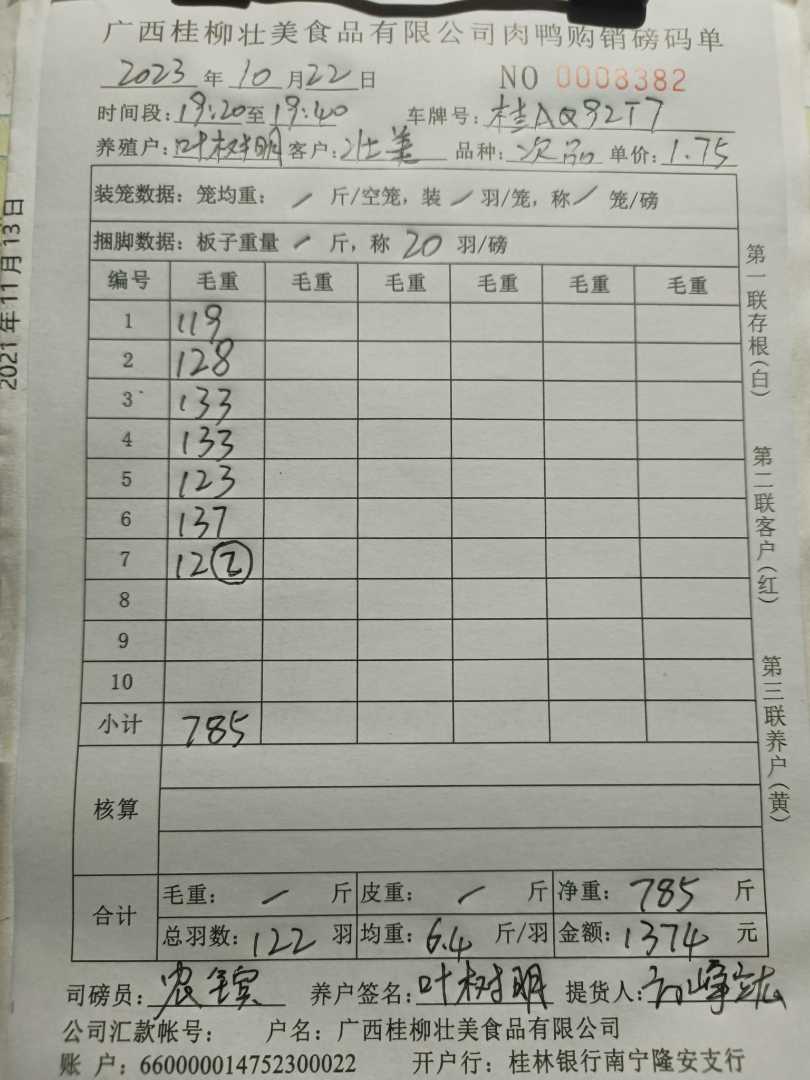 广西桂柳壮美食品有限公司肉鸭购销磅码单
2023年10月22日 NO 0008382
时间段:19:20至19:40 车牌号:桂AQ92T7
养殖户:叶树明 客户:壮美 品种:次品 单价:1.75
装笼数据:笼均重: / 斤/空笼,装 / 羽/笼,称 / 笼/磅
捆脚数据:板子重量 / 斤,称 20 羽/磅
编号 毛重 毛重 毛重 毛重 毛重 毛重
1 119
2 128
3 133
4 133
5 123
6 137
7 12②
8
9
10
小计 785
核算
合计 毛重: / 斤 皮重: / 斤 净重: 785 斤
总羽数: 122 羽 均重: 6.4 斤/羽 金额: 1374 元
司磅员: 养户签名:叶树明 提货人:
公司汇款帐号: 户名:广西桂柳壮美食品有限公司
账 户:660000014752300022 开户行:桂林银行南宁隆安支行
第一联存根(白) 第二联客户(红) 第三联养户(黄)
2021年11月13日